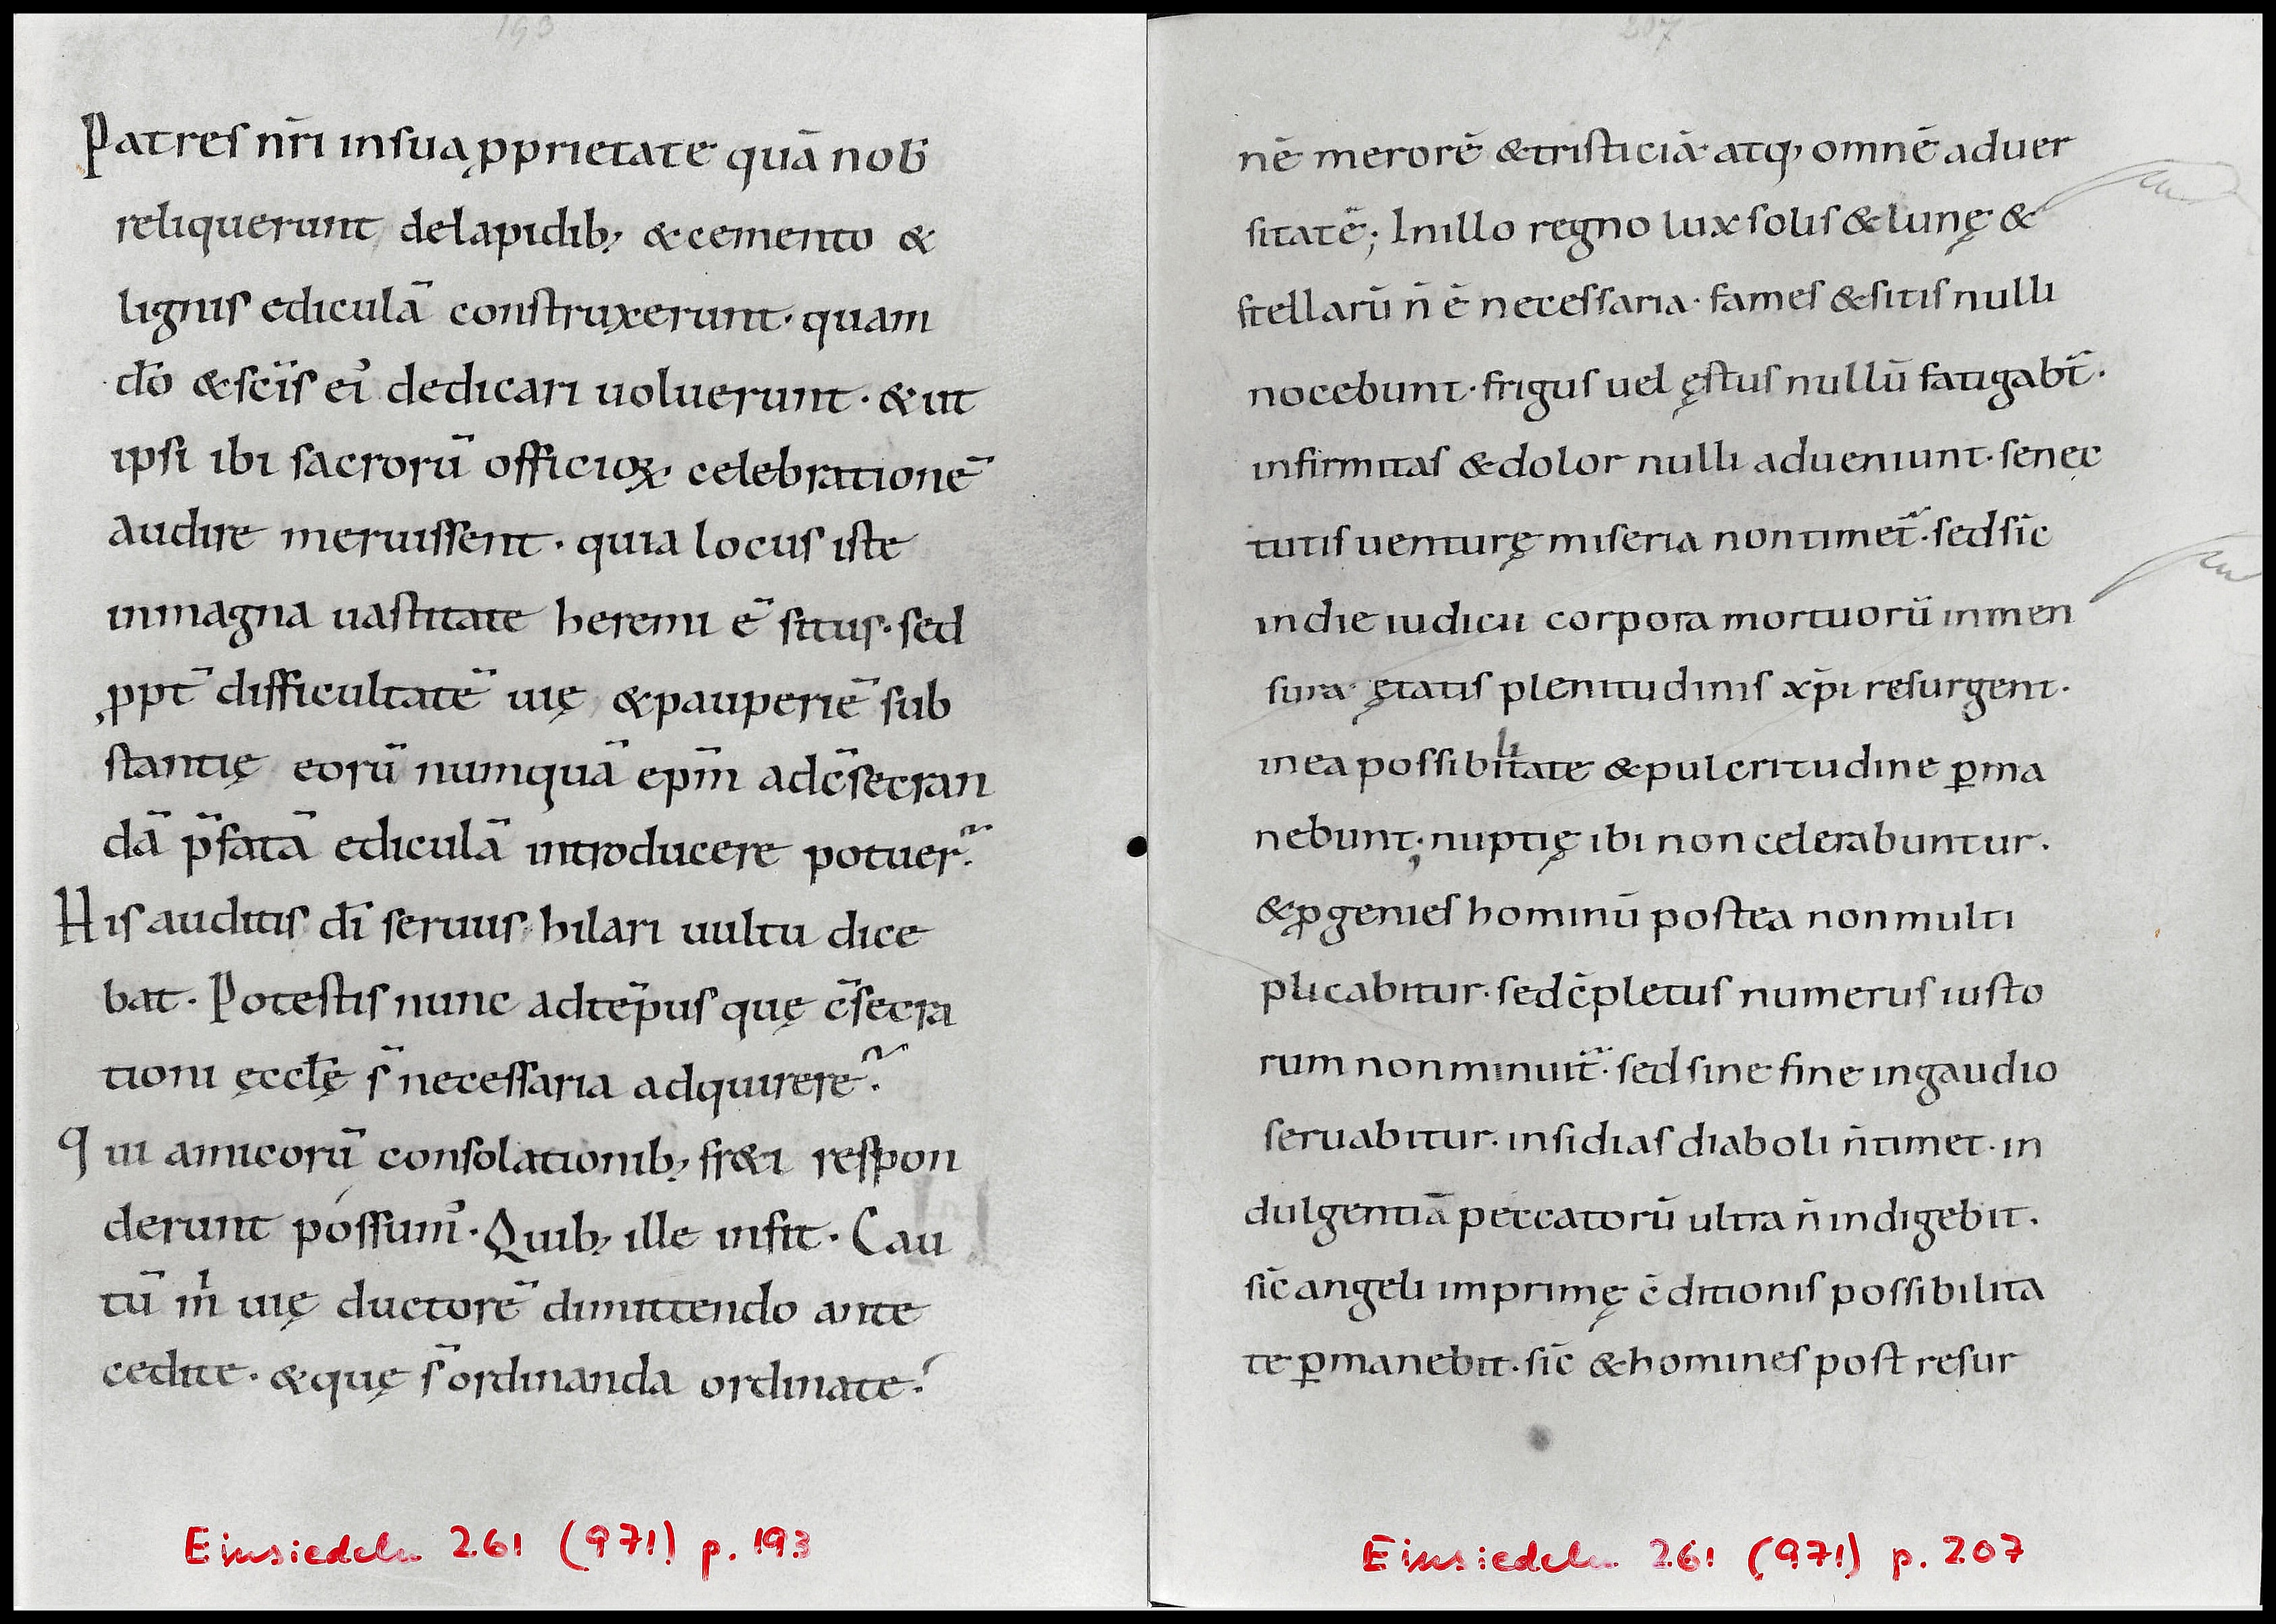 193
Patres nr̄i insua ꝓprietate quā nob̄
reliquerunt delapidib; & cemento &
lignis ediculā construxerunt · quam
dō & sc̄is ei᾽ dedicari uoluerunt · & ut
ipsi ibi sacrorū officioꝝ celebrationē
audire meruissent · quia locus iste
inmagna uastitate heremi ē situs · sed
ꝓpt̄ difficultatē uię & pauperiē sub
stantię eorū numquā ep̄m adc̄secran
dā p̄fatā ediculā introducere potuer̄.
His auditis dī seruus hilari uultu dice
bat · Potestis nunc adtēpus quę c̄secra
tioni ęccl̄ę s̄ necessaria adquirere.
qui amicorū consolationib; fr&i respon
derunt possum᾽ · Quib; ille infit · Cau
tū m̍ uię ductorē dimittendo ante
cedite · & quę s̄ ordinanda ordinate.
Einsiedeln 261 (971) p. 193
207
nē merorē & tristiciā · atq; omnē aduer
sitatē; Inillo regno lux solis & lunę &
stellarū n̄ ē necessaria · fames & sitis nulli
nocebunt · frigus uel ęstus nullū fatigabt̄ ·
infirmitas & dolor nulli adueniunt · senec
tutis uenturę miseria non timet̄ · sed sīc
in die iudicii corpora mortuorū inmen
sura ętatis plenitudinis xp̄i resurgent ·
inea possibilitate & pulcritudine ꝑma
nebunt; nuptię ibi non celerabuntur ·
& ꝓgenies hominū postea non multi
plicabitur · sed c̄pletus numerus iusto
rum non minuit̄ · sed sine fine ingaudio
seruabitur · insidias diaboli n̄ timet · in
dulgentiā peccatorū ultra n̄ indigebit ·
sīc angeli imprimę c̄ditionis possibilita
te ꝑmanebit · sīc & homines post resur
Einsiedeln 261 (971) p. 207